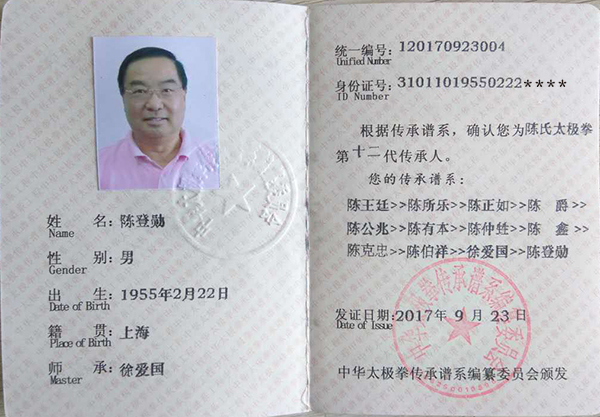 姓 名：陈登勋
Name
性 别：男
Gender
出 生：1955年2月22日
Date of Birth
籍 贯：上海
Place of Birth
师 承：徐爱国
Master
统一编号：120170923004
Unified Number
身份证号：31011019550222****
ID Number
根据传承谱系，确认您为陈氏太极拳
第十二代传承人。
您的传承谱系：
陈王廷>>陈所乐>>陈正如>>陈 爵>>
陈公兆>>陈有本>>陈仲甡>>陈 鑫>>
陈克忠>>陈伯祥>>徐爱国>>陈登勋
发证日期：2017年 9 月 23日
Date of Issue
中华太极拳传承谱系编纂委员会颁发